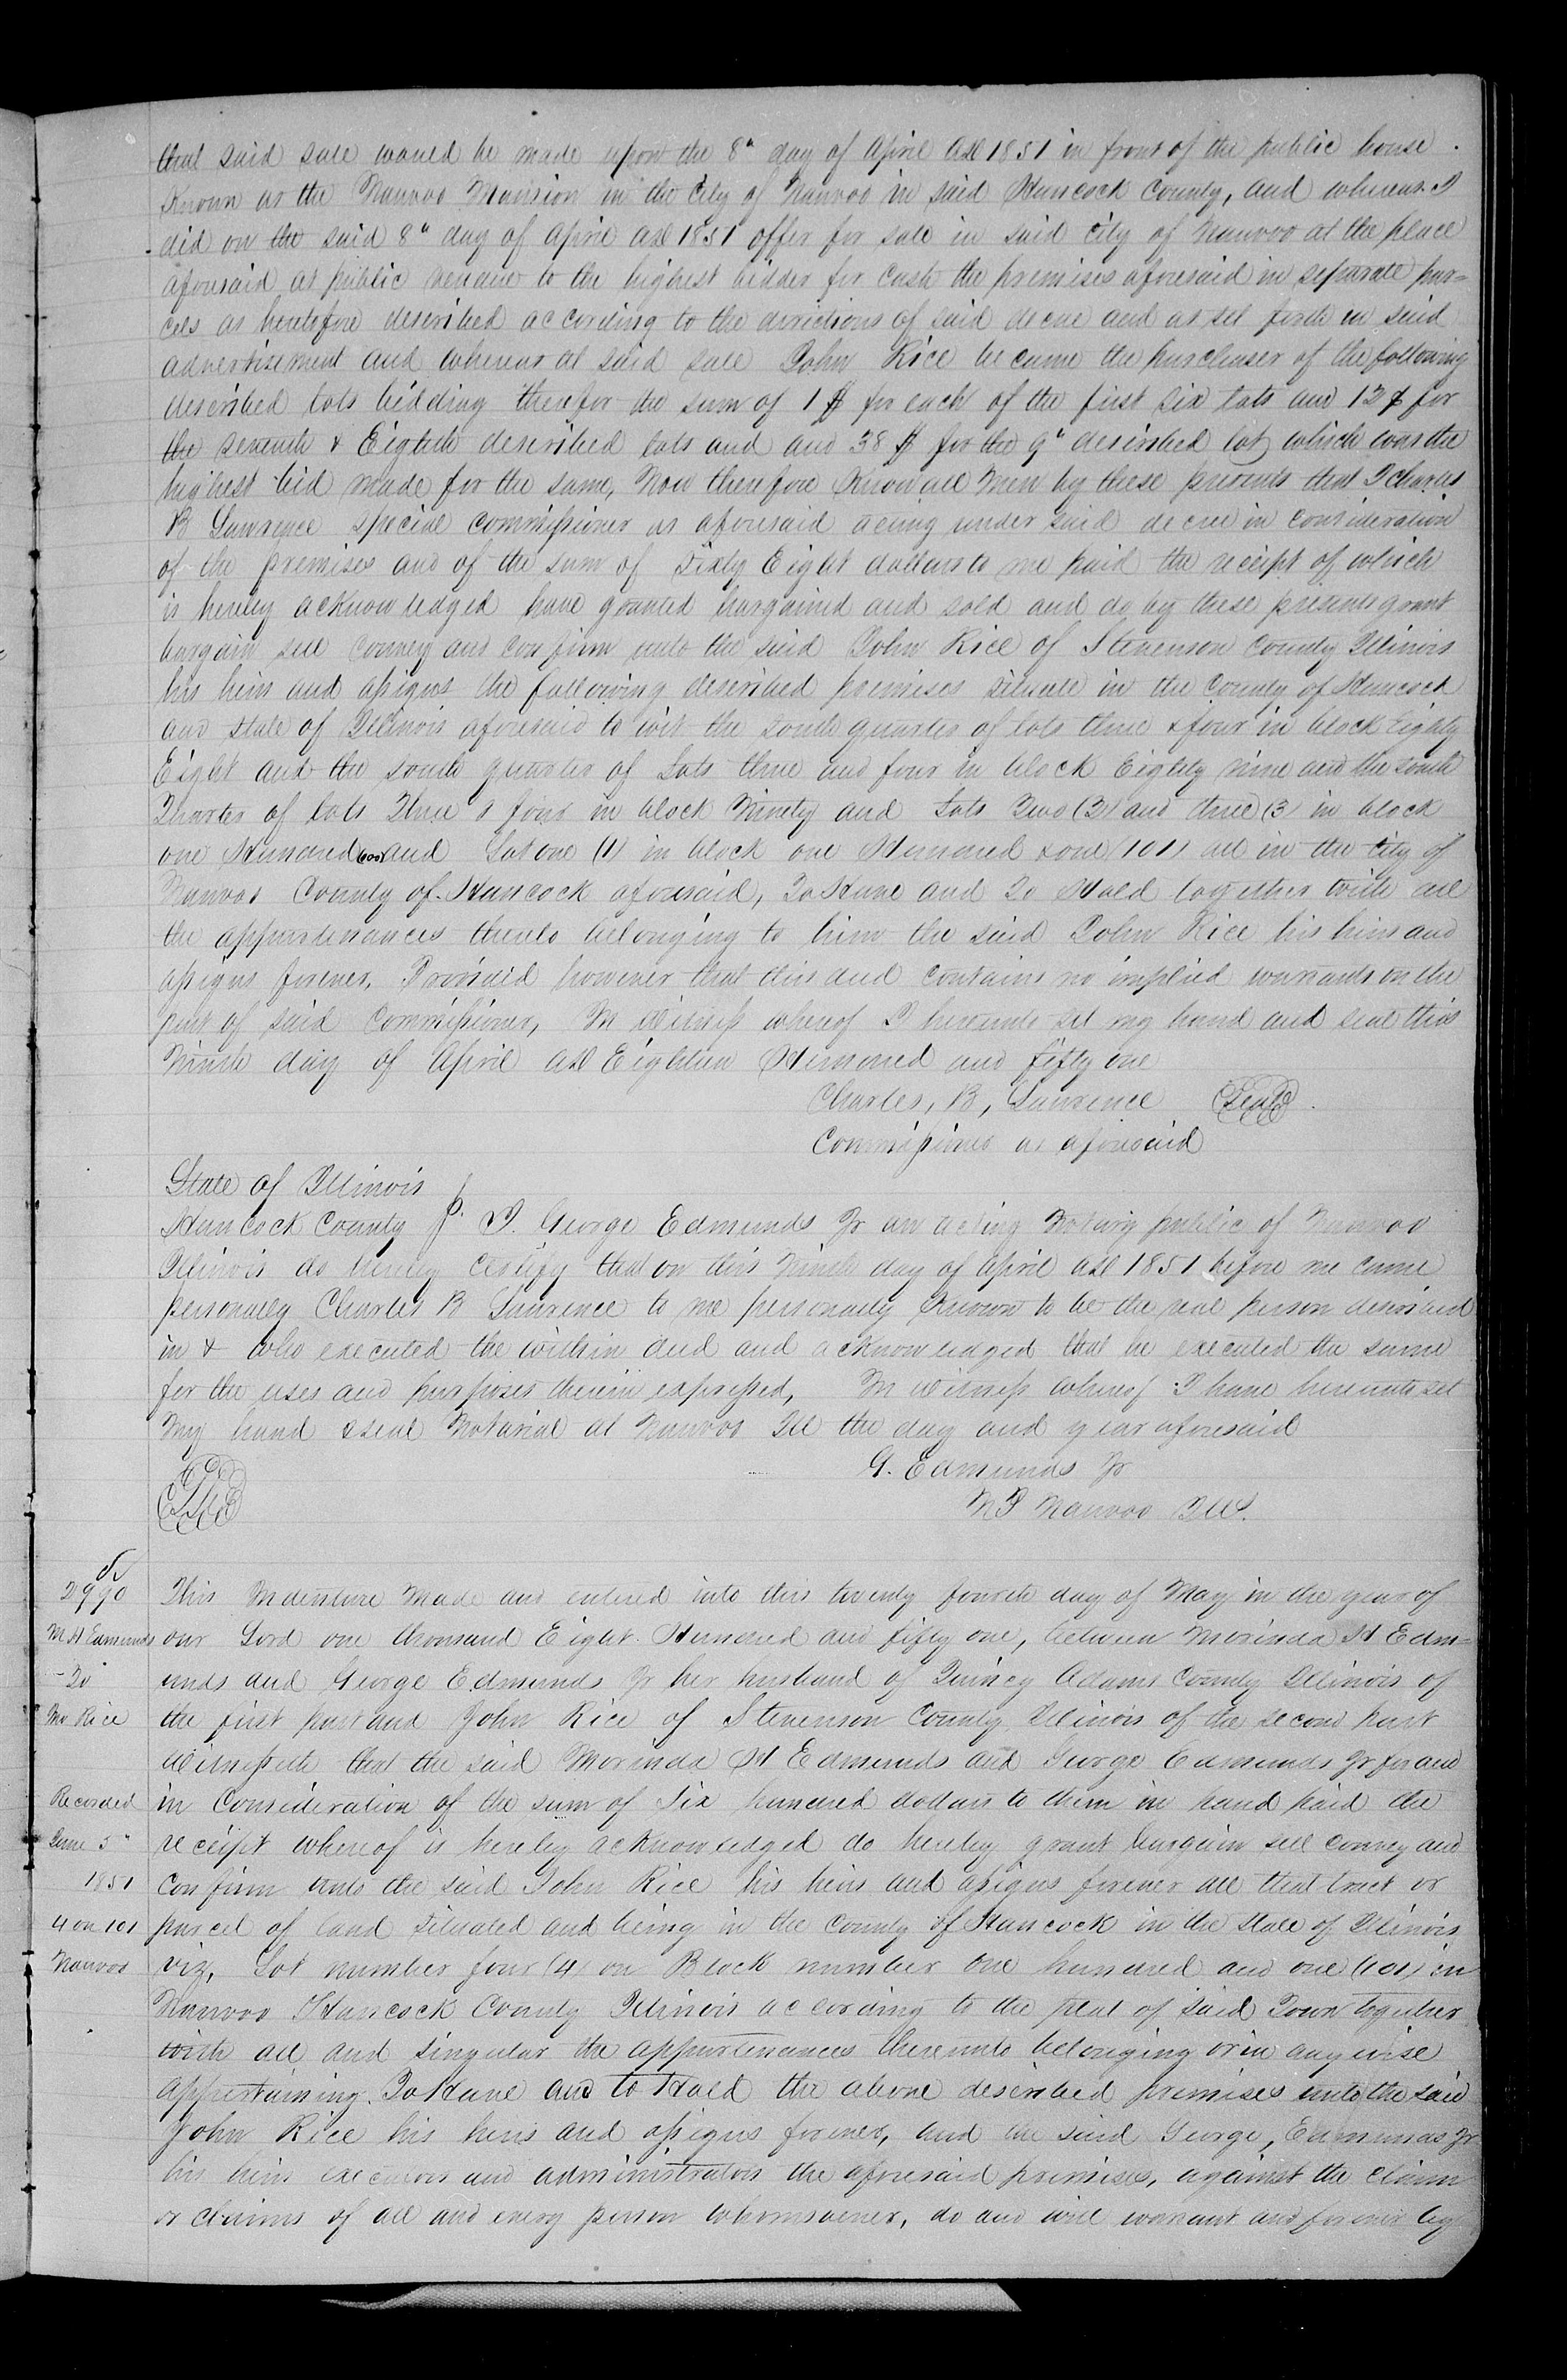 that said sale would be made upon the 8" day of April AD 1851 in front of the public house
Known as the Nauvoo Mansion in the City of Nauvoo in said Hancock County, and whereas I
did on the said 8" day of April AD 1851 offer for sale in said City of Nauvoo at the place
aforesaid at public vendue to the highest bidder for Cash the premises aforesaid in separate par=
cels as heretofore described according to the directions of said decree and as set forth in said
advertisement and whereas at said sale John Rice became the purchaser of the following
described lots bidding therefor the sum of 1 $ for each of the first six lots and 12 $ for
the seventh & Eighth described lots and and 38 $ for the 9" described lot, which was the
highest bid made for the same, Now therefore Know all Men by these presents that I Charles
B Lawrence special commissioner as aforesaid acting under said decree in consideration
of the premises and of the sum of Sixty Eight dollars to me paid the receipt of which
is hereby acknowledged have granted bargained and sold and do by these presents grant
bargain sell convey and confirm unto the said John Rice of Stevenson County Illinois
his heirs and assigns the following described premises situate in the County of Hancock
and state of Illinois aforesaid to wit the south quarter of lots three & four in block Eighty
Eight and the south quarter of Lots three and four in block Eighty nine and the south
Quarter of lots Three & four in block Ninety and Lots Two (2) and three (3) in block
one Hundred (100) and Lot one (1) in block one Hundred & one (101) all in the City of
Nauvoo County of Hancock aforesaid, To Have and To Hold together with all
the appurtenances thereto belonging to him the said John Rice his heirs and
assigns forever, Provided however that this deed contains no implied warrants on the
part of said Commissioner, In Witness whereof I hereunto set my hand and seal this
Ninth day of April AD Eighteen Hundred and fifty one
Charles, B, Lawrence Seal
Commissioner as aforesaid
State of Illinois
Hancock County ss. I. George Edmunds Jr an acting Notary public of Nauvoo
Illinois do hereby certify that on this Ninth day of April AD 1851 before me came
personally Charles B Lawrence to me personally Known to be the real person described
in & who executed the within deed and acknowledged that he executed the same
for the uses and purposes therein expressed, In Witness whereof I have hereunto set
My hand & seal Notarial at Nauvoo Ill the day and year aforesaid
G. Edmunds Jr
N P Nauvoo Ills.
2990 This Indenture Made and entered into this twenty fourth day of May in the year of
M H Edmunds our Lord one thousand Eight Hundred and fifty one, between Morinda H Edm=
To unds and George Edmunds Jr her husband of Quincy Adams County Illinois of
Rice the first part and John Rice of Stevenson County Illinois of the second part
Witnesseth that the said Morinda H Edmunds and George Edmunds Jr for and
Recorded in Consideration of the sum of Six hundred dollars to them in hand paid the
June 5" receipt whereof is hereby acknowledged do hereby grant bargain sell convey and
1851 confirm unto the said John Rice his heirs and assigns forever all that tract or
4 on 101 parcel of land situated and being in the County of Hancock in the state of Illinois
Nauvoo viz, Lot number four (4) on Block number one hundred and one (101) in
Nauvoo Hancock County Illinois according to the plat of said Town together
with all and singular the appurtenances thereunto belonging or in anywise
appertaining. To Have and to Hold the above described premises unto the said
John Rice his heirs and assigns forever, And the said George, Edmunds Jr
his heirs executors and administrators the aforesaid premises, against the claim
or claims of all and every person whomsoever, do and will warrant and forever by